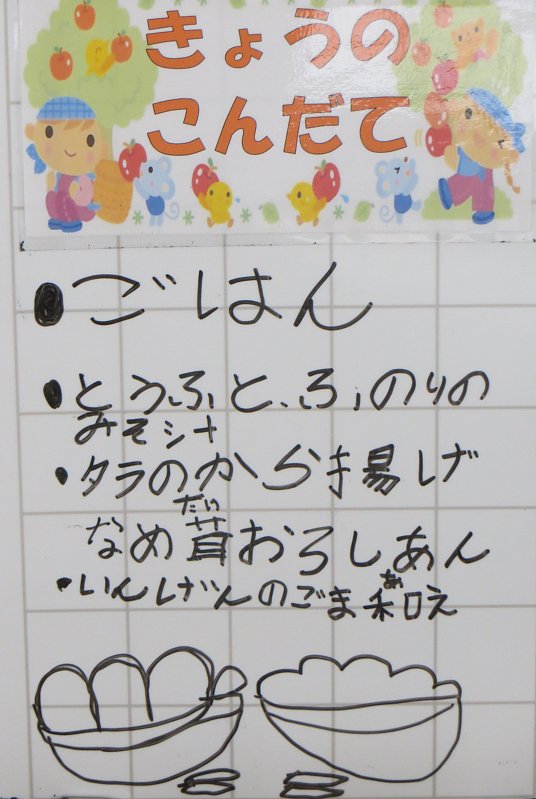 きょうの
こんだて
●ごはん
●とうふとふのりの
みそシ十
・タラのから揚げ
だけ
なめ茸おろしあん
あ
・いんげんのごま和え